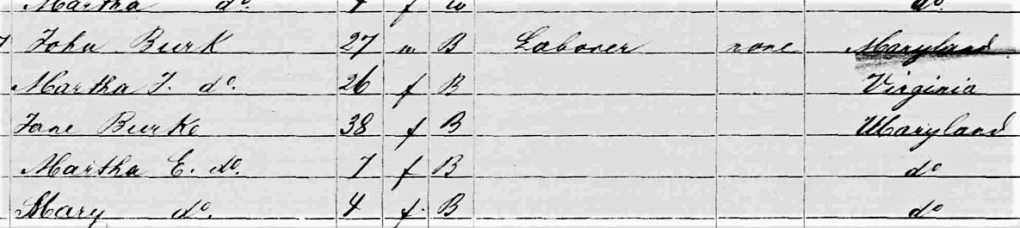 Martha do. 4 f
7 John Burk 27 m B Laborer none Maryland
Martha J. do. 26 f B Virginia
Jane Burke 38 f B Maryland
Martha E. do. 7 f B do
Mary do. 4 f. B do